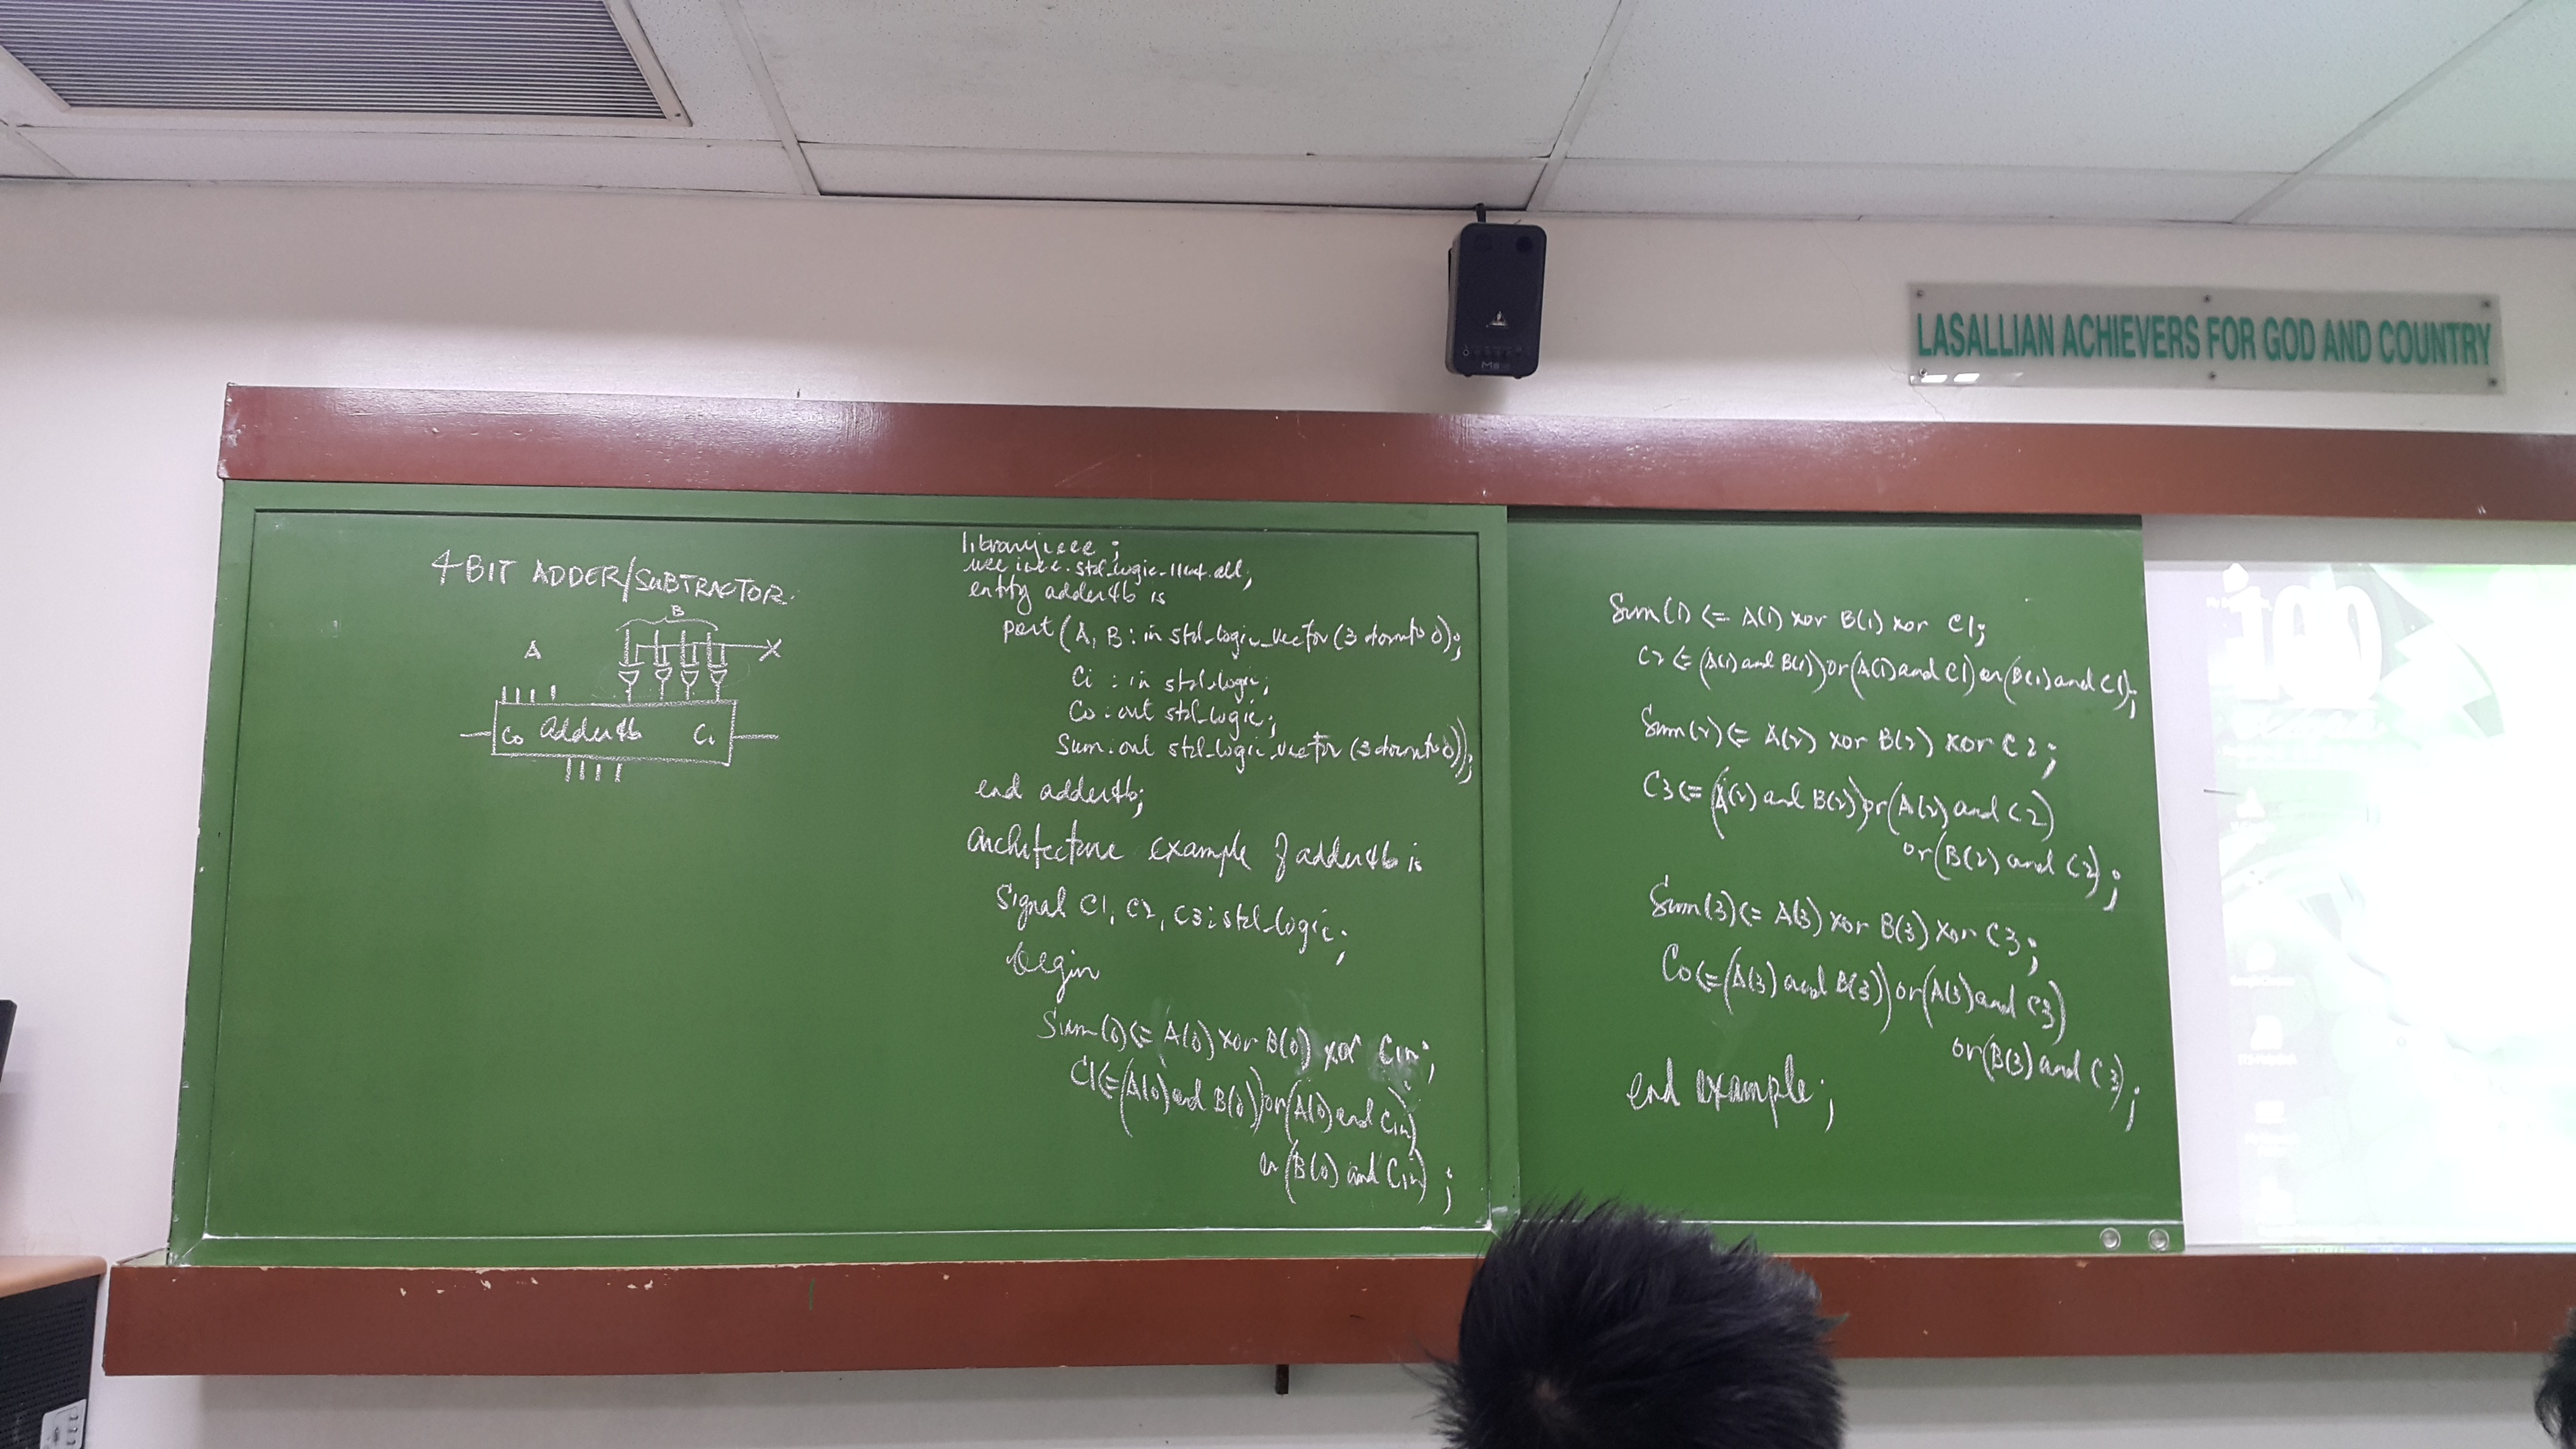 LASALLIAN ACHIEVERS FOR GOD AND COUNTRY
4-BIT ADDER/SUBTRACTOR
B
A
X
Co adder4b Ci
library ieee;
use ieee.std_logic_1164.all;
entity adder4b is
port (A, B : in std_logic_vector (3 downto 0);
Ci : in std_logic;
Co : out std_logic;
Sum : out std_logic_vector (3 downto 0));
end adder4b;
architecture example of adder4b is
signal C1, C2, C3 : std_logic;
begin
Sum(0) <= A(0) xor B(0) xor Cin;
C1 <= (A(0) and B(0)) or (A(0) and Cin)
or (B(0) and Cin);
Sum(1) <= A(1) xor B(1) xor C1;
C2 <= (A(1) and B(1)) or (A(1) and C1) or (B(1) and C1);
Sum(2) <= A(2) xor B(2) xor C2;
C3 <= (A(2) and B(2)) or (A(2) and C2)
or (B(2) and C2);
Sum(3) <= A(3) xor B(3) xor C3;
Co <= (A(3) and B(3)) or (A(3) and C3)
or (B(3) and C3);
end example;
100